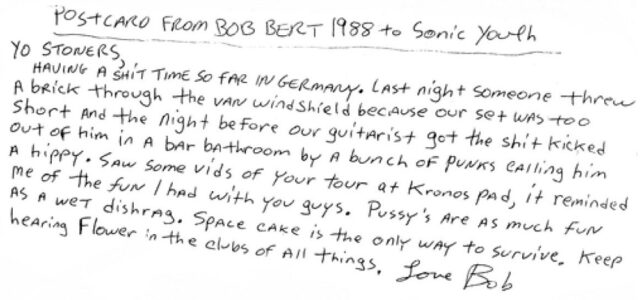 POSTCARD FROM BOB BERT 1988 to Sonic Youth
YO STONERS,
HAVING A SHIT TIME SO FAR IN GERMANY. LAST night someone threw
A brick through the VAN windshield because our set was too
short and the night before our guitarist got the shit kicked
out of him in A bar bathroom by A bunch of PUNKS calling him
A hippy. Saw some vids of your tour at Kronos pad, it reminded
me of the fun I had with you guys. Pussy's are as much fun
AS A WET dishrag. Space cake is the only way to survive. Keep
hearing Flower in the clubs of all things. Love Bob